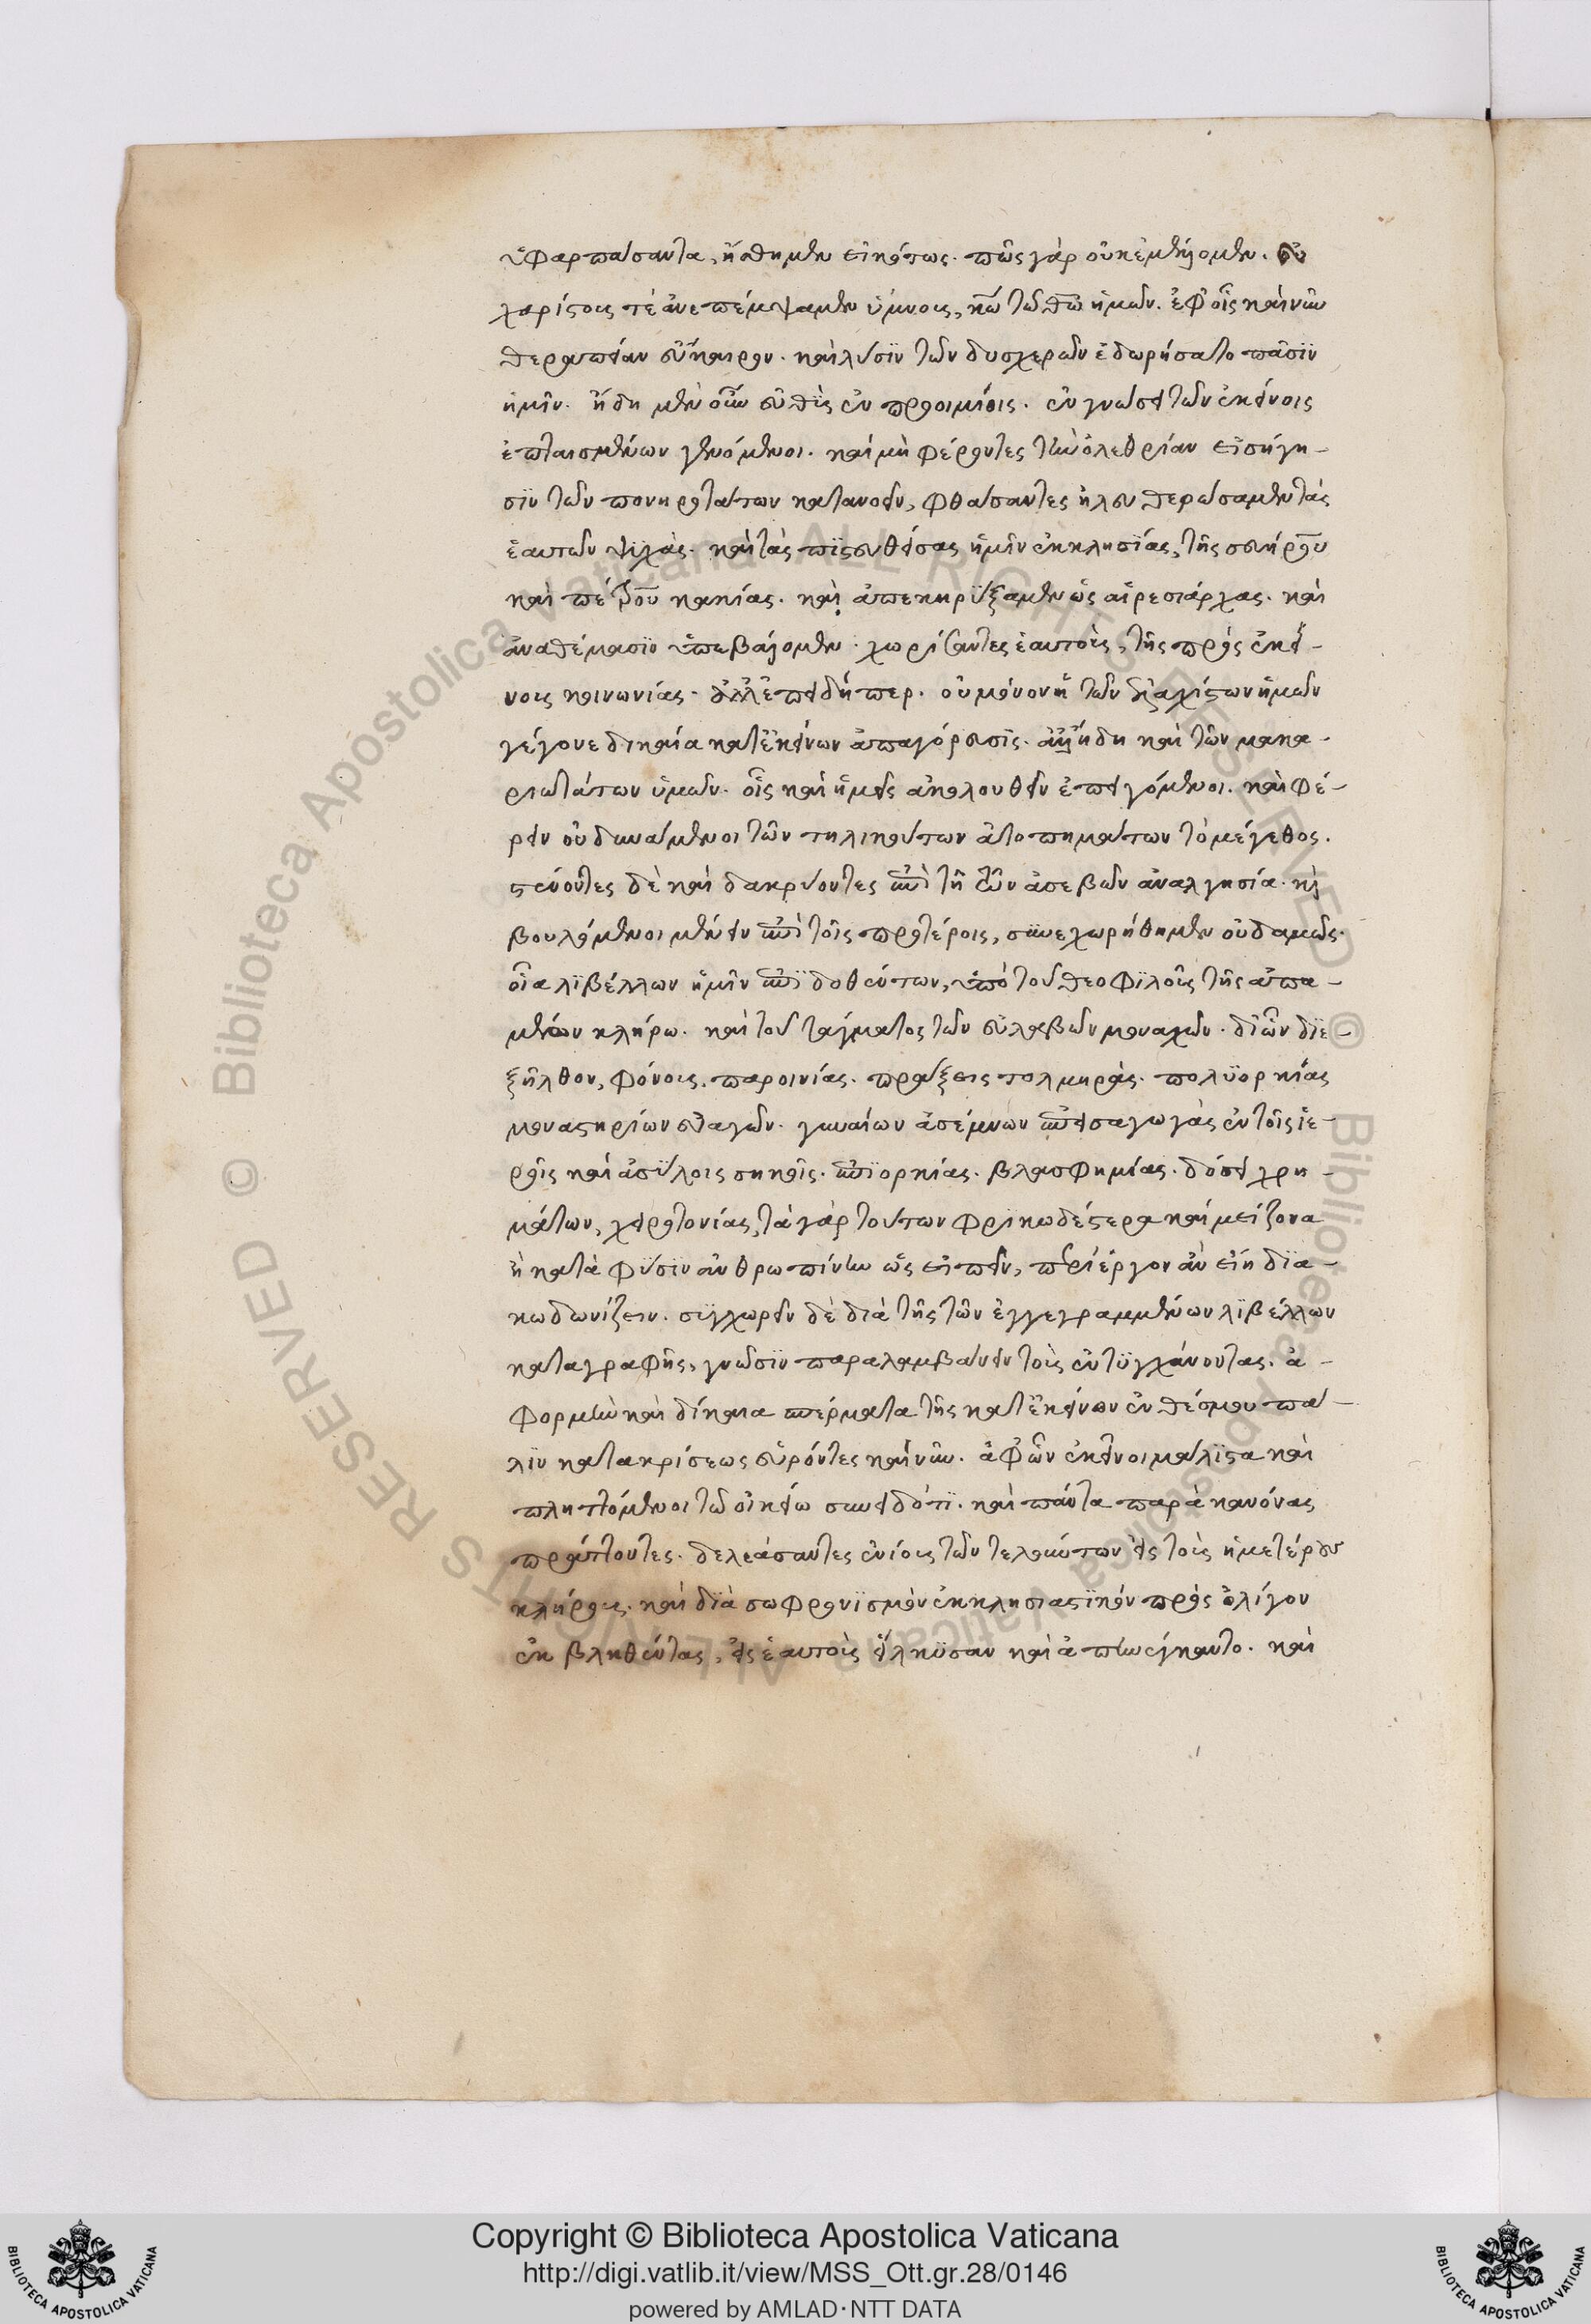 ὑφαρπάσαντα, ἥσθημεν εἰκότως. πῶς γὰρ οὐκ ἐμέλλομεν. εὐ
χαρίστους τὲ ἀνεπέμψαμεν ὕμνους, κω τῶ θω ἡμῶν. ἐφ οἷς καὶ νῦν
θεραπείαν εὔκαιρον. καὶ λύσϊν τῶν δυσχερῶν ἐδωρήσατο πᾶσϊν
ἡμῖν. ἤδη μὲν οὖν εὐθὺς ἐν προοιμίοις. ἐν γνώσει τῶν ἐκείνοις
ἐπταισμένων γενόμενοι. καὶ μὴ φέροντες τὴν ὀλεθρίαν εἰσήγη-
σϊν τῶν πονηροτάτων κατανοεῖν, φθάσαντες ἠλευθερώσαμεν τὰς
ἑαυτῶν ψυχὰς. καὶ τὰς πϊστευθείσας ἡμῖν ἐκκλησίας, τῆς σευήρου
καὶ πέτρου κακίας. καὶ ἀπεκηρύξαμεν ὡς αἱρεσιάρχας. καὶ
ἀναθέμασϊν ὑπεβάλλομεν. χωρίσαντες ἑαυτοὺς, τῆς πρὸς ἐκεί-
νους κοινωνίας. ἀλλ ἐπειδήπερ. οὐ μόνον ἡ τῶν ἐλαχίστων ἡμῶν
γέγονε δικαία κατ ἐκείνων ἀπαγόρευσϊς. ἀλλ ἤδη καὶ τῶν μακα-
ριωτάτων ὑμῶν. οἷς καὶ ἡμεῖς ἀκολουθεῖν ἐπειγόμενοι. καὶ φέ-
ρειν οὐ δυνάμενοι τῶν τηλικούτων ἀτοπημάτων τὸ μέγεθος.
στένοντες δὲ καὶ δακρύοντες ἐπὶ τῆ τῶν ἀσεβῶν ἀναλγησία. καὶ
βουλόμενοι μένειν ἐπὶ τοῖς προτέροις, συνεχωρήθημεν οὐδαμῶς.
οἷα λϊβέλλων ἡμῖν ἐπϊδοθέντων, ὑπὸ τοῦ θεοφϊλοῦς τῆς ἀπα-
μέων κλήρου. καὶ τοῦ τάγματος τῶν εὐλαβῶν μοναχῶν. δι ὧν δϊε-
ξῆλθον, φόνους. παροινίας. πράξεις τολμηράς. πολϊορκίας
μοναστηρίων εὐαγῶν. γυναίων ἀσέμνων ἐπεισαγωγὰς ἐν τοῖς ἱε-
ροῖς καὶ ἀσύλοις σηκοῖς. ἐπϊορκίας. βλασφημίας. δόσει χρη-
μάτων, χειροτονίας, τὰ γὰρ τούτων φρικωδέστερα καὶ μείζονα
ἢ κατὰ φύσϊν ἀνθρωπίνην ὡς εἰπεῖν, περίεργον ἂν εἴη δϊα-
κωδωνίζειν. συγχωρεῖν δὲ διὰ τῆς τῶν ἐγγεγραμμένων λϊβέλλων
καταγραφῆς, γνῶσϊν παραλαμβάνειν τοὺς ἐντϋγχάνοντας. ἀ-
φορμὴν καὶ δίκαια πέρματα τῆς κατ ἐκείνων ἐνθέσμου πά-
λϊν κατακρίσεως εὑρόντες καὶ νῦν. ἀφ ὧν ἐκεῖνοι μάλϊστα καὶ
πληττόμενοι τῶ οἰκείω συνειδότϊ. καὶ πάντα παρὰ κανόνας
πράττοντες. δελεάσαντες ἐνίους τῶν τελούντων εἰς τοὺς ἡμετέρου
κλήρους. καὶ δϊὰ σωφρονϊσμὸν ἐκκλησιαστϊκὸν πρὸς ὀλίγον
ἐκβληθέντας, εἰς ἑαυτοὺς εἵλκϋσαν καὶ ἀπηνέγκαντο. καὶ
Copyright © Biblioteca Apostolica Vaticana
http://digi.vatlib.it/view/MSS_Ott.gr.28/0146
powered by AMLAD·NTT DATA